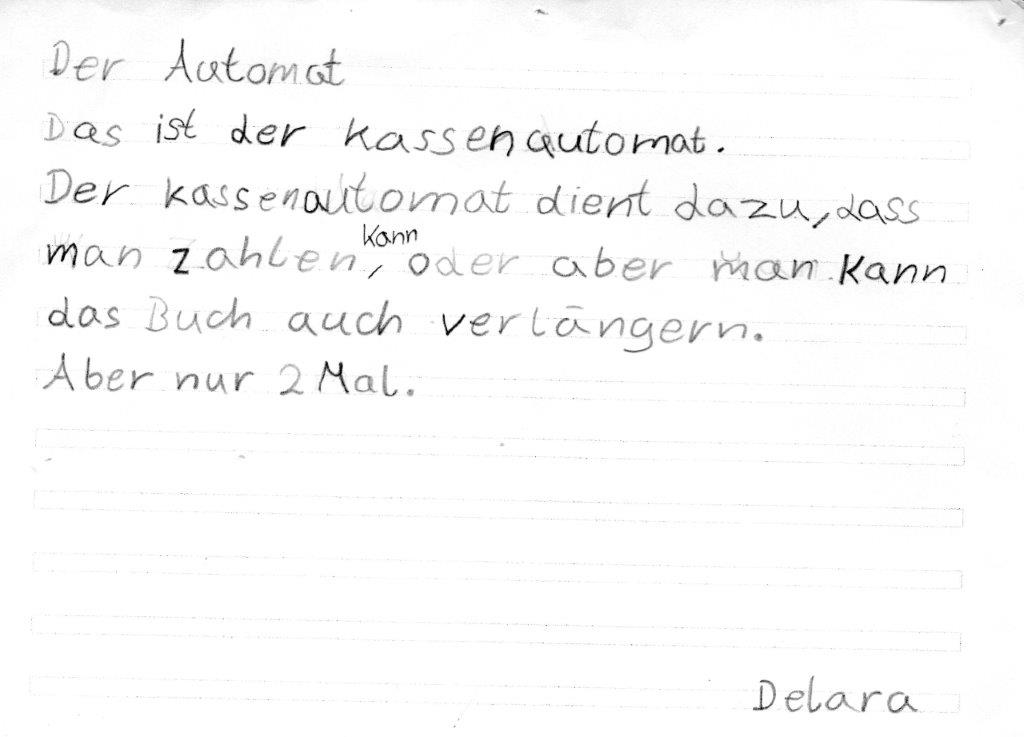 Der Automat
Das ist der Kassenautomat.
Der Kassenautomat dient dazu, dass
man zahlen kann, oder aber man kann
das Buch auch verlängern.
Aber nur 2 Mal.
Delara